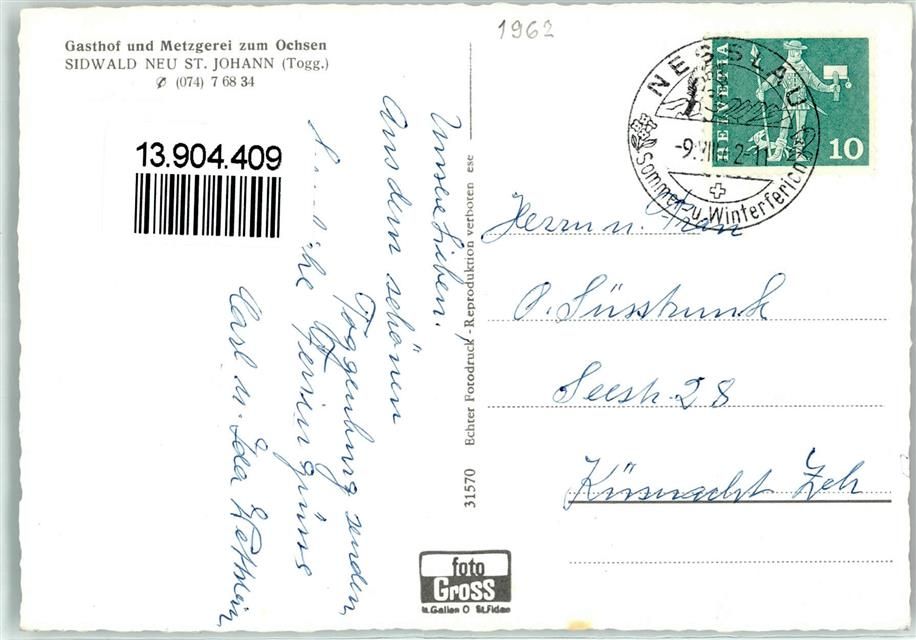 1962
Gasthof und Metzgerei zum Ochsen
SIDWALD NEU ST. JOHANN (Togg.)
(074) 7 68 34
13.904.409
Unsere Lieben!
Aus dem schönen
Toggenburg senden
Feriengrüsse
Carl u. Ida
31570 Echter Fotodruck - Reproduktion verboten ese
NESSLAU
-9.VII 2-11
Sommer u. Winterferien
HELVETIA
10
Herrn u. Frau
O. Süsstrunk
Seestr. 28
Küsnacht Zch
foto
Gross
St.Gallen O St.Fiden